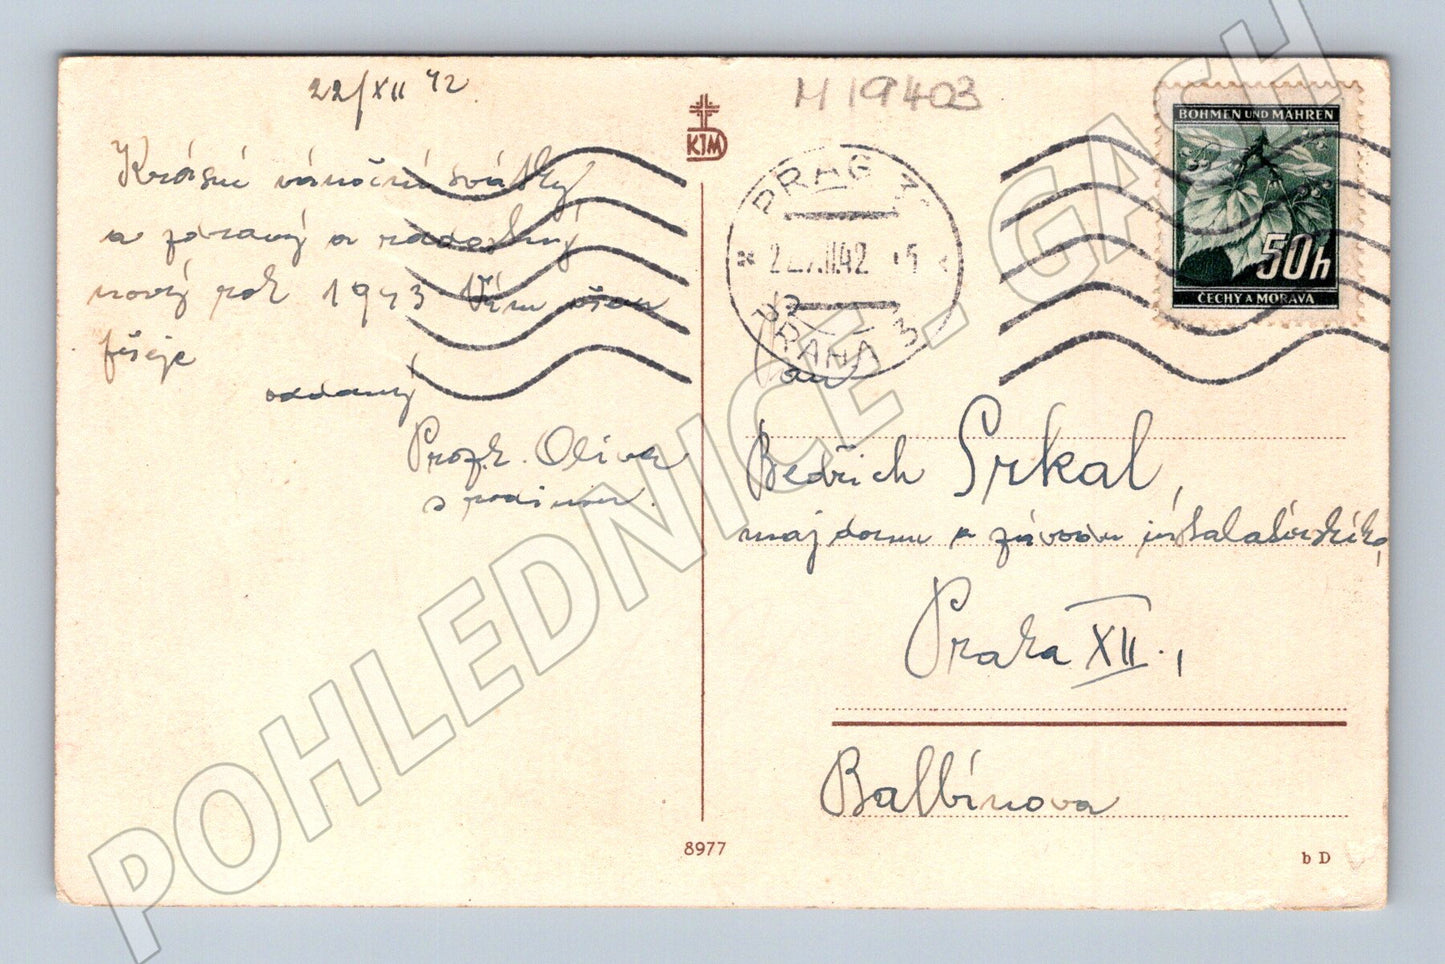 22/XII 42
Krásné vánoční svátky
a zdravý a radostný
nový rok 1943 Vám všem
přeje
oddaný
Prof. Oliva
s rodinou.
8977
KIM
M 19403
PRAG 3
22.XII.42
PRAHA 3
BÖHMEN UND MÄHREN
50h
ČECHY A MORAVA
Pan
Bedřich Srkal,
maj domu a závodu instalatérského,
Praha XII.,
Balbínova
b D
POHLEDNICE_GACH